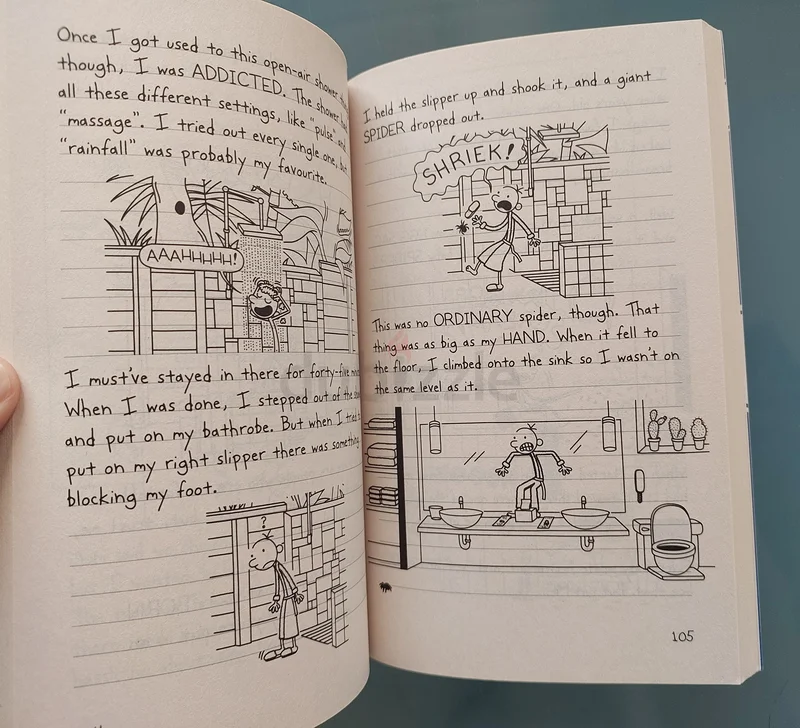 Once I got used to this open-air shower
though, I was ADDICTED. The shower had
all these different settings, like "pulse" and
"massage". I tried out every single one, but
"rainfall" was probably my favourite.
AAAHHHHH!
I must've stayed in there for forty-five
When I was done, I stepped out of the
and put on my bathrobe. But when I tried
put on my right slipper there was something
blocking my foot.
?
I held the slipper up and shook it, and a giant
SPIDER dropped out.
SHRIEK!
This was no ORDINARY spider, though. That
thing was as big as my HAND. When it fell to
the floor, I climbed onto the sink so I wasn't on
the same level as it.
105